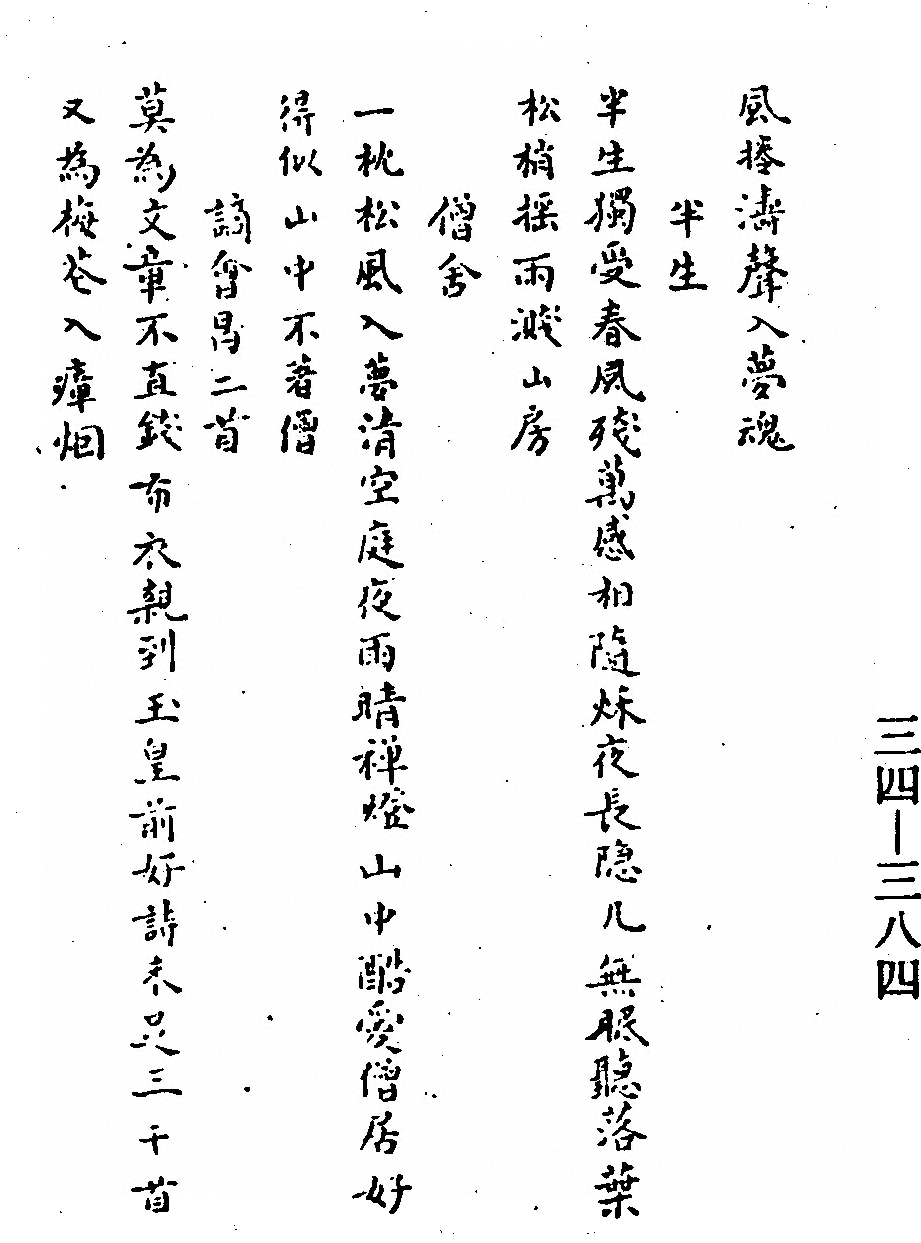 風捲濤聲入夢魂
半生
半生獨受春風殘萬感相隨秌夜長隐几無眠聽落葉
松梢摇雨濺山房
僧舍
一枕松風入夢清空庭夜雨晴禅燈山中酷愛僧居好
得似山中不著僧
謫會昌二首
莫為文章不直錢布衣親到玉皇前好詩未足三千首
又為梅花入瘴烟
三四—三八四